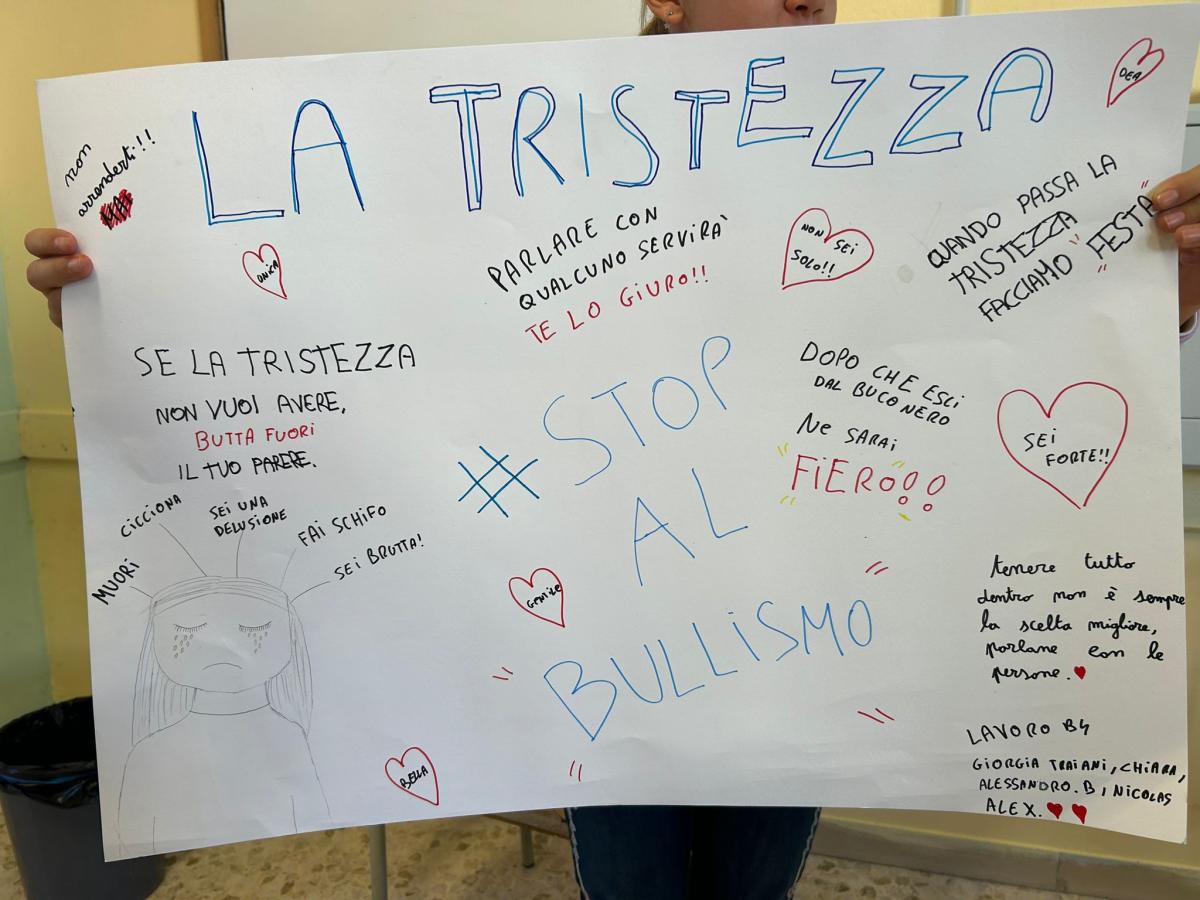 LA TRISTEZZA
DEA
non
arrenderti!!!
UNICA
PARLARE CON
QUALCUNO SERVIRÀ
TE LO GIURO!!
NON SEI
SOLO!!
QUANDO PASSA LA
TRISTEZZA
FACCIAMO "FESTA"
SE LA TRISTEZZA
NON VUOI AVERE,
BUTTA FUORI
IL TUO PARERE.
#STOP
AL
BULLISMO
DOPO CHE ESCI
DAL BUCO NERO
NE SARAI
FIERO!!
SEI
FORTE!!
MUORI
CICCIONA
SEI UNA
DELUSIONE
FAI SCHIFO
SEI BRUTTA!
GENTILE
BELLA
tenere tutto
dentro non è sempre
la scelta migliore,
parlane con le
persone.
LAVORO B4
GIORGIA TRAIANI, CHIARA,
ALESSANDRO.B, NICOLAS
ALEX.